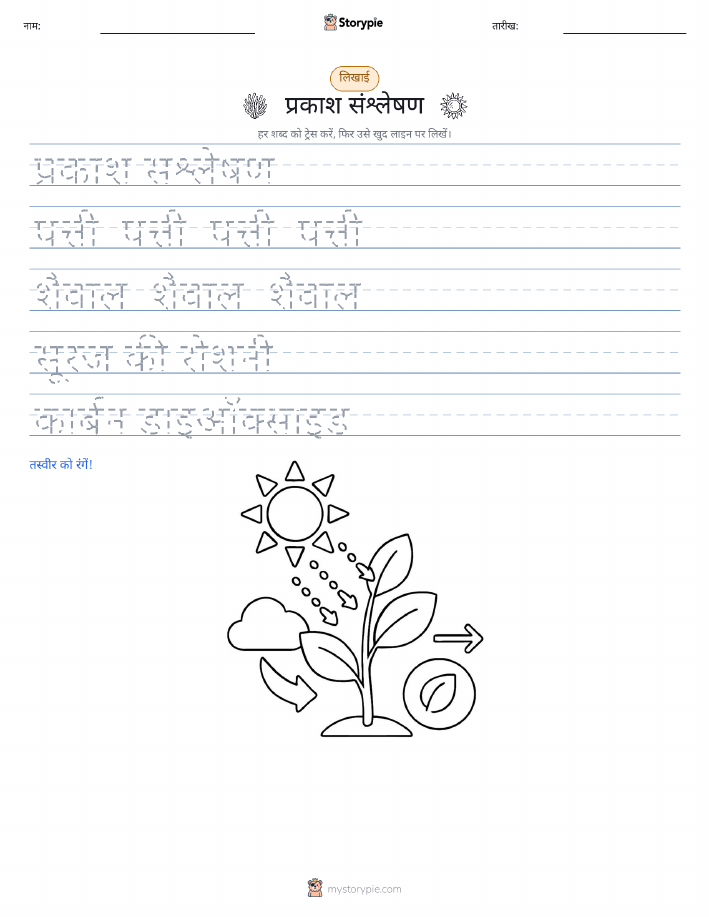 नाम:
Storypie
तारीख:
लिखाई
प्रकाश संश्लेषण
हर शब्द को ट्रेस करें, फिर उसे खुद लाइन पर लिखें।
प्रकाश सश्लेषण
पत्ती पत्ती पत्ती पत्ती
शैवाल शैवाल शैवाल
सूरज की रोशनी
कार्बन डाइऑक्साइड
तस्वीर को रंगें!
mystorypie.com